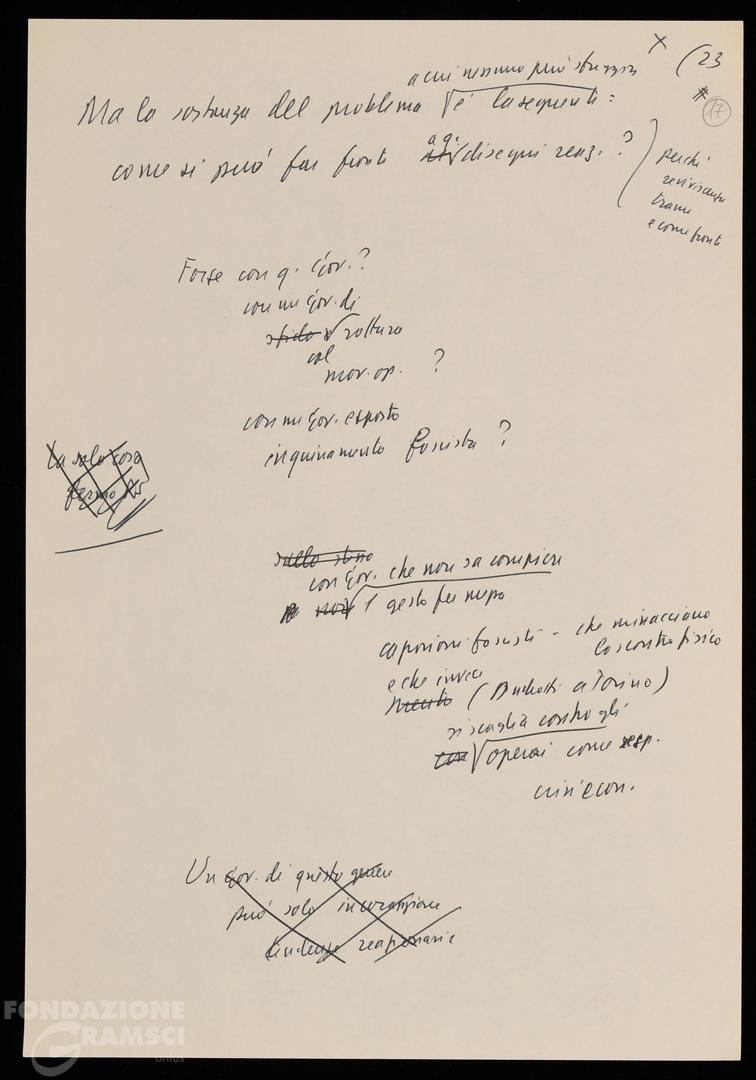 x (23
# 17
a cui nessuno può sfuggire
Ma la sostanza del problema √ è la seguente:
come si può far fronte a q. disegni reaz.?
perché
reviviscenza
trame
e come fronte
Forse con q. Gov.?
con un Gov. di
sfida √ rottura
col
mov. op. ?
con un Gov. esposto
inquinamento fascista?
La sola cosa
sullo stesso
con Gov. che non sa compiere
√ 1 gesto per
caporioni fascisti - che minacciano
lo scontro fisico
e che invece
(Andreotti a Torino)
si scaglia contro gli
√ operai come resp.
crisi econ.
Un Gov. di questo genere
può solo incoraggiare
tendenze reazionarie
FONDAZIONE
GRAMSCI
onlus